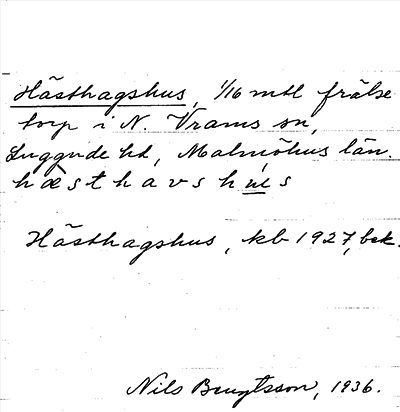 Hästhagshus, 1/16 mtl frälse
torp i N. Vrams sn,
Luggude hd, Malmöhus län.
hæsthavshu̲s
Hästhagshus, kb 1927, bek.
Nils Bengtsson, 1936.